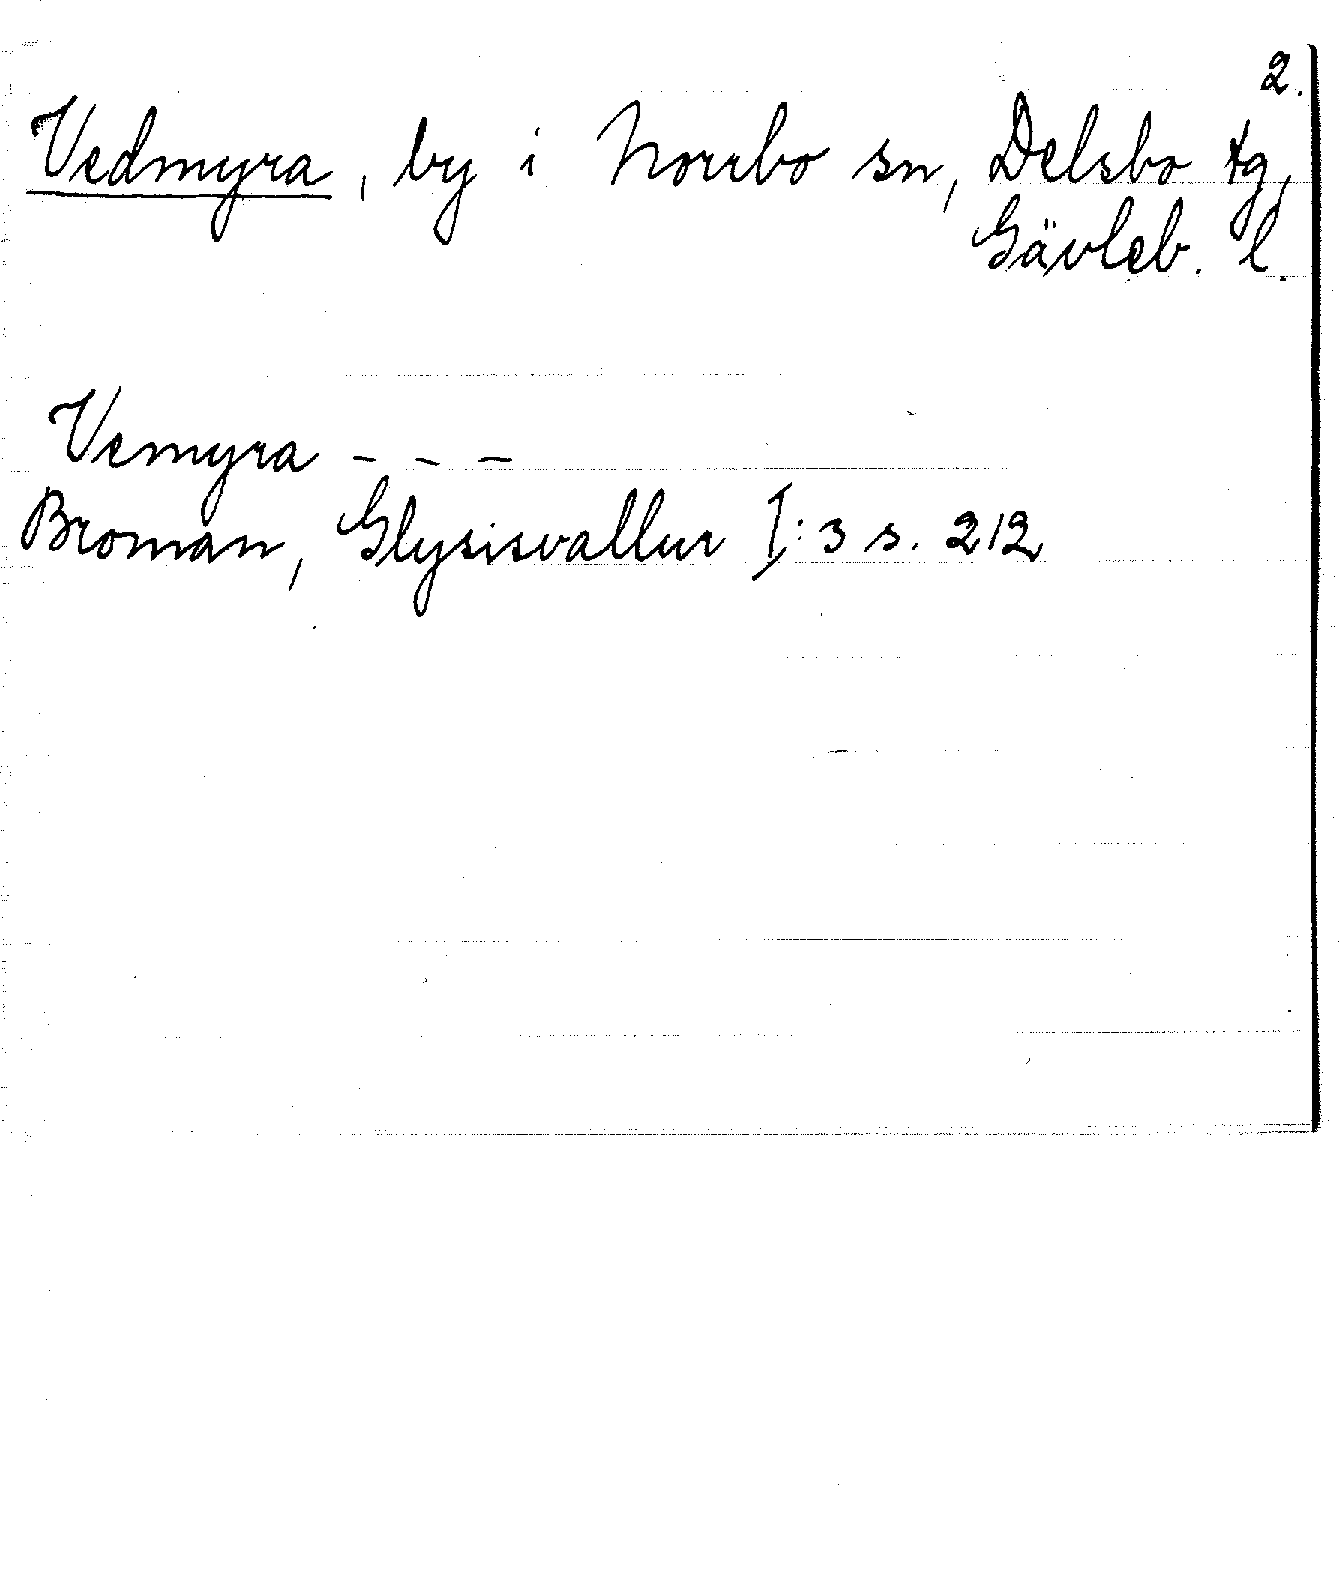 2.
Vedmyra, by i Norrbo sn, Delsbo tg,
Gävleb. l.
Vemyra - - -
Broman, Glysisvallur I:3 s. 212